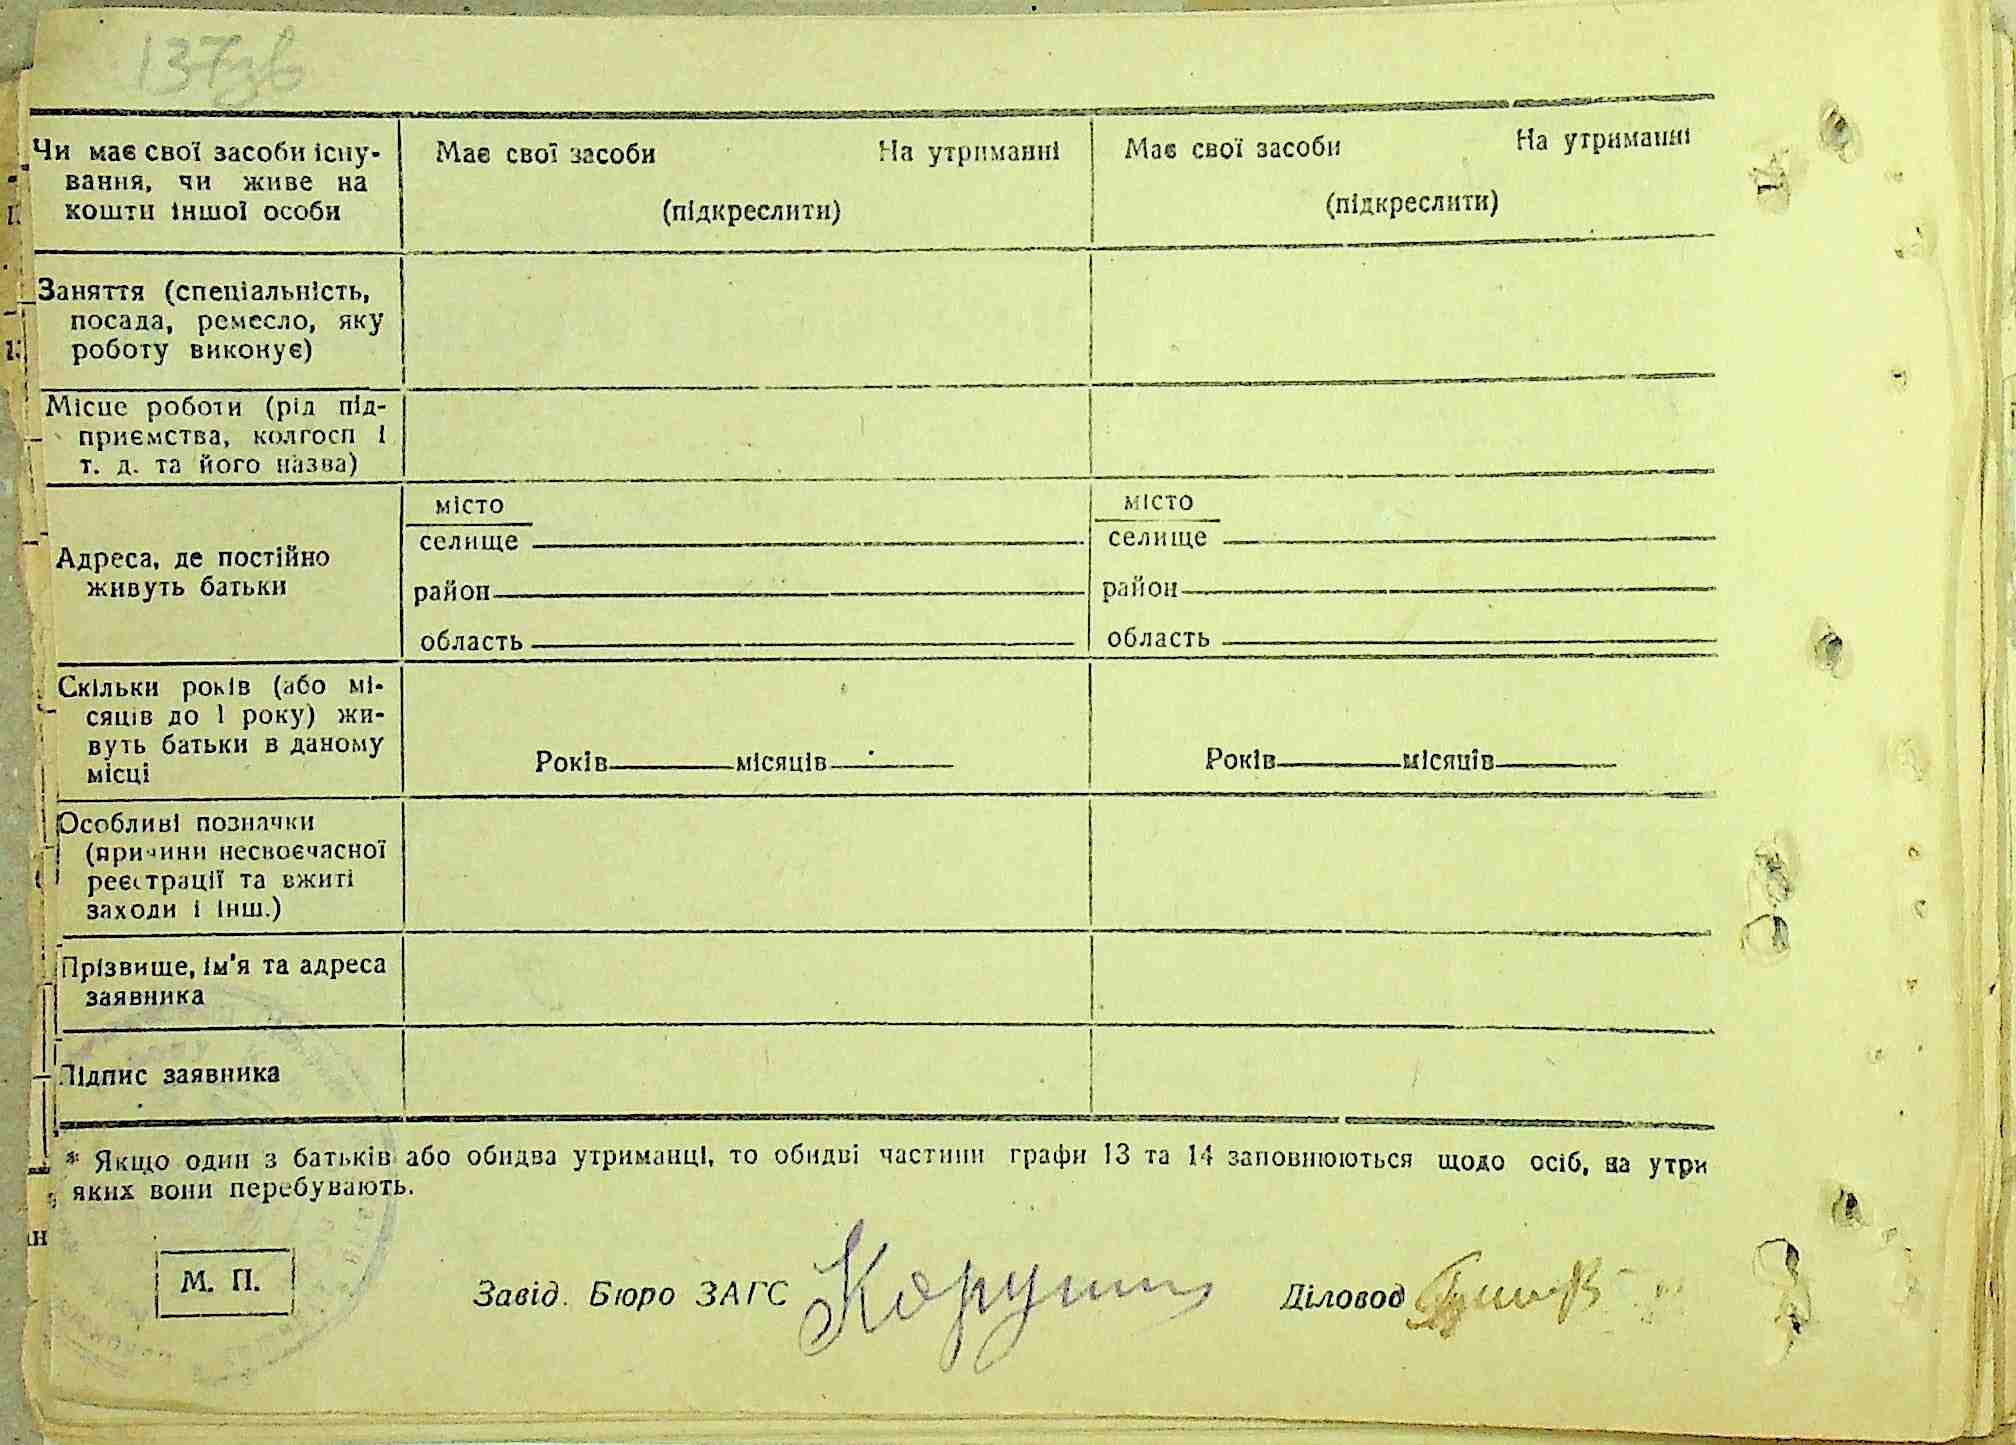 137зв
Чи має свої засоби існу-
вання, чи живе на
кошти іншої особи
Має свої засоби На утриманні
(підкреслити)
Має свої засоби На утриманні
(підкреслити)
Заняття (спеціальність,
посада, ремесло, яку
роботу виконує)
Місце роботи (рід під-
приємства, колгосп і
т. д. та його назва)
Адреса, де постійно
живуть батьки
місто
селище
район
область
місто
селище
район
область
Скільки років (або мі-
сяців до 1 року) жи-
вуть батьки в даному
місці
Років місяців
Років місяців
Особливі позначки
(причини несвоєчасної
реєстрації та вжиті
заходи і інш.)
Прізвище, ім'я та адреса
заявника
Підпис заявника
* Якщо один з батьків або обидва утриманці, то обидві частини графи 13 та 14 заповнюються щодо осіб, на утри
яких вони перебувають.
М. П.
Завід. Бюро ЗАГС
Діловод